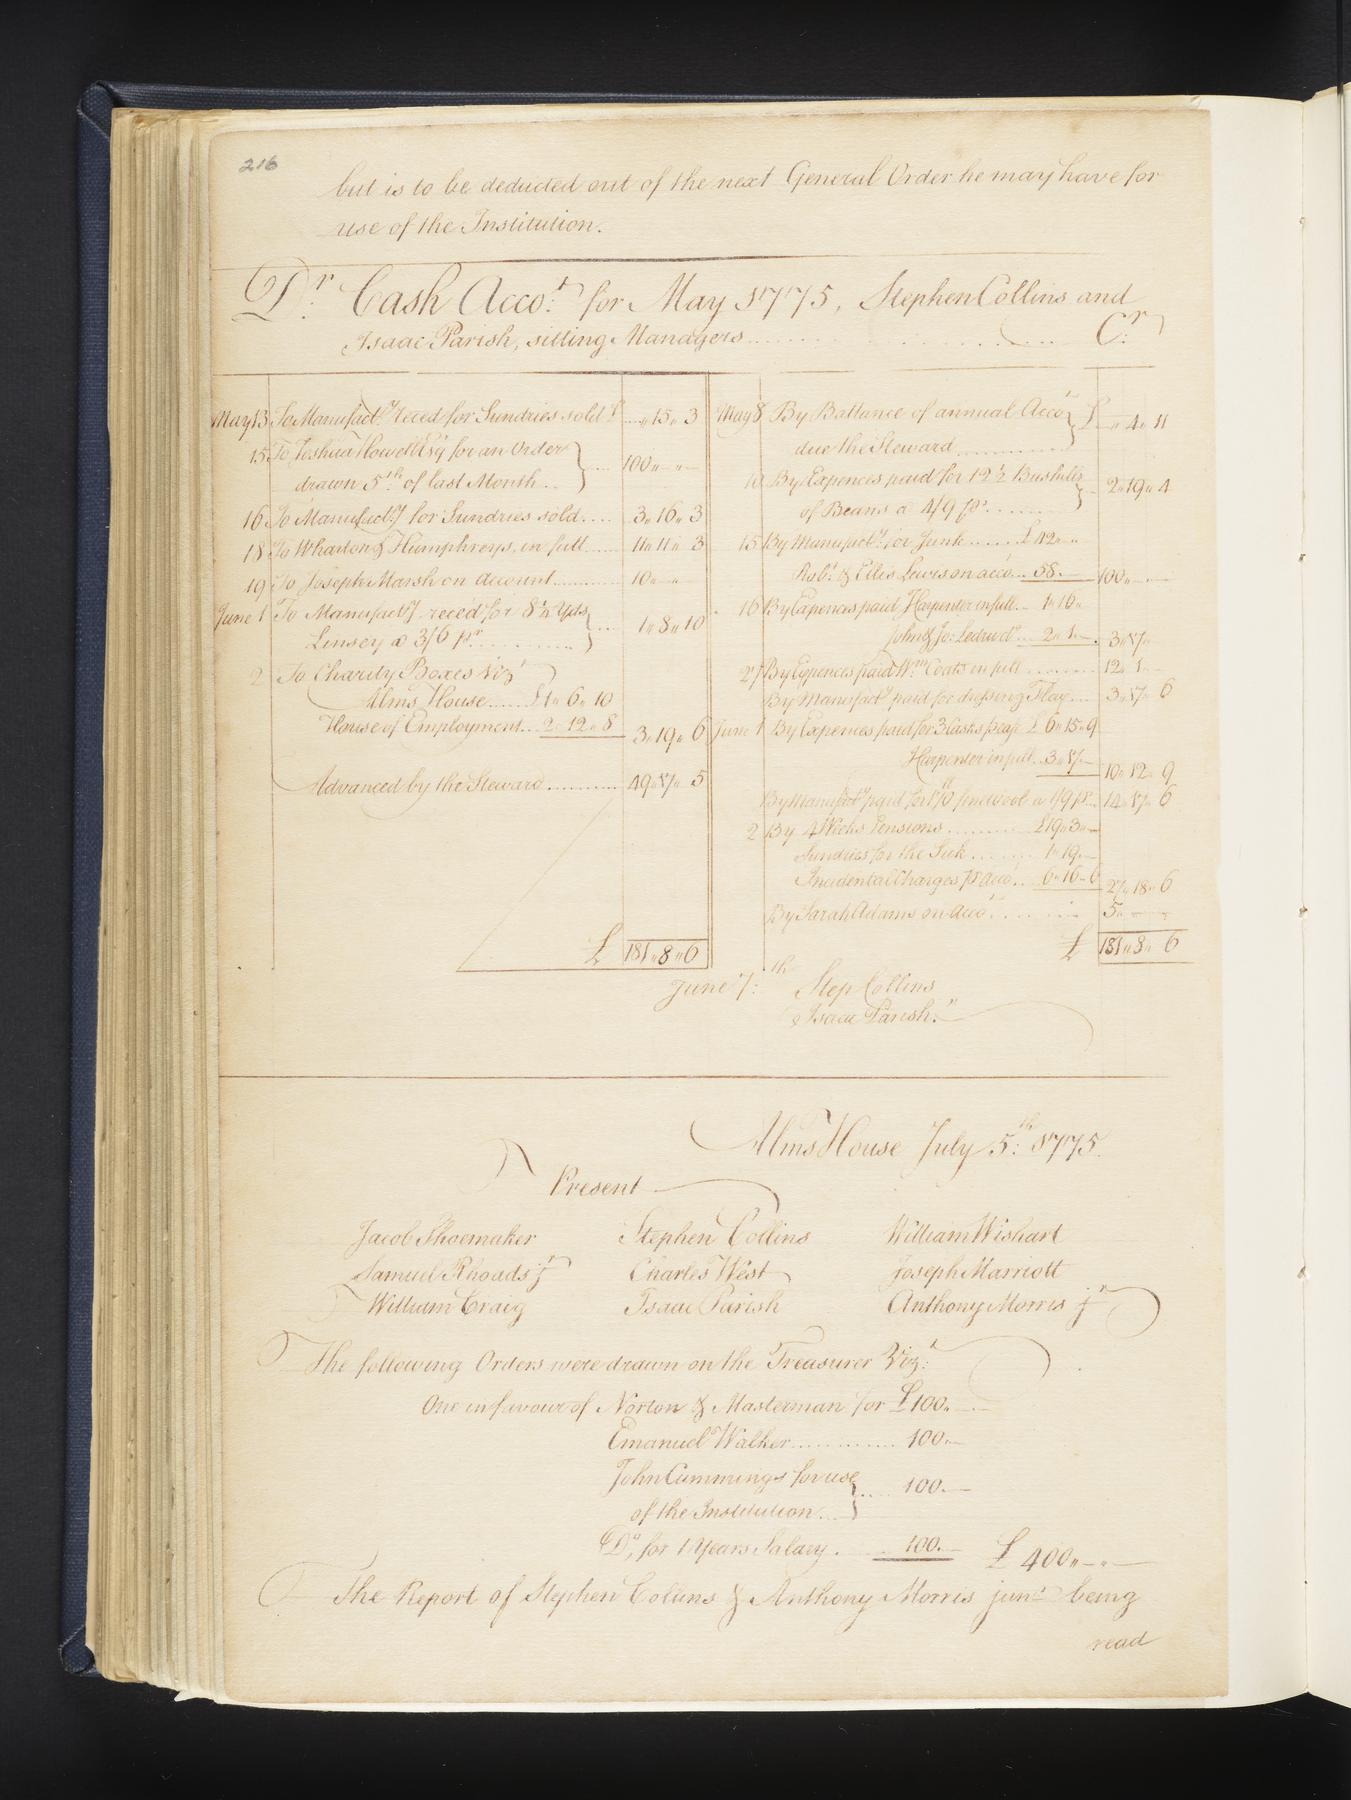 216
but is to be deducted out of the next General Order he may have for
use of the Institution.
Dr. Cash Acco.t for May 1775, Stephen Collins and
Isaac Parish, sitting Managers ............ Cr.
May 13 To Manufact.y reced for Sundries sold £ ... " 15 " 3
15 To Joshua Howell Esq for an Order
drawn 5th of last Month .. 100 " — " —
16 To Manufact.y for Sundries sold .... 3 " 16 " 3
18 To Wharton & Humphreys, in full ...... 11 " 11 " 3
19 To Joseph Marsh on account ............ 10 " — " —
June 1 To Manufact.y reced for 8 1/2 Yds
Linsey a 3/6 pr. .......... 1 " 8 " 10
2 To Charity Boxes Viz
Alms House ...... £1 " 6 " 10
House of Employment ... 2 " 12 " 8 3 " 19 " 6
Advanced by the Steward ............ 49 " 17 " 5
£ 181 " 8 " 6
May 8 By Ballance of annual Acco.t
due the Steward ............ £ — " 4 " 11
10 By Expences paid for 12 1/2 Bushells
of Beans a 4/9 pr. ....... 2 " 19 " 4
15 By Manufact.y for Junk ...... £ 42 " "
Rob.t & Ellis Lewis on acco ... 58 — 100 " — " —
16 By Expences paid Harpenter in full .. 1 " 16 "
John & Jo: Ledru do ... 2 " 1 — 3 " 17 " —
27 By Expences paid Wm Coats in full ......... 12 " 1 —
By Manufact.y paid for dressing Flax .... 3 " 17 " 6
June 1 By Expences paid for 3 Casks soap £ 6 " 15 " 9
Harpenter in full .. 3 " 17 — 10 " 12 " 9
By Manufact.y paid for 170 lb fine wool a 1/9 pr. .. 14 " 17 " 6
2 By 4 Weeks Pensions .......... £19 " 3 " —
Sundries for the Sick ........ 1 " 19 —
Incidental Charges pr acco .. 6 " 16 " 6 27 " 18 " 6
By Sarah Adams on acco ........ 5 " — " —
£ 181 " 8 " 6
June 7:th Step Collins
Isaac Parish.
Alms House July 5:th 1775.
Present
Jacob Shoemaker Stephen Collins William Wishart
Samuel Rhoads jr Charles West Joseph Marriott
William Craig Isaac Parish Anthony Morris jr
The following Orders were drawn on the Treasurer Viz:t
One in favour of Norton & Masterman for £100. —
Emanuel Walker ............ 100. —
John Cummings for use
of the Institution .. 100. —
Do, for 1 Years Salary . ..... 100. — £ 400 " — " —
The Report of Stephen Collins & Anthony Morris junr being
read